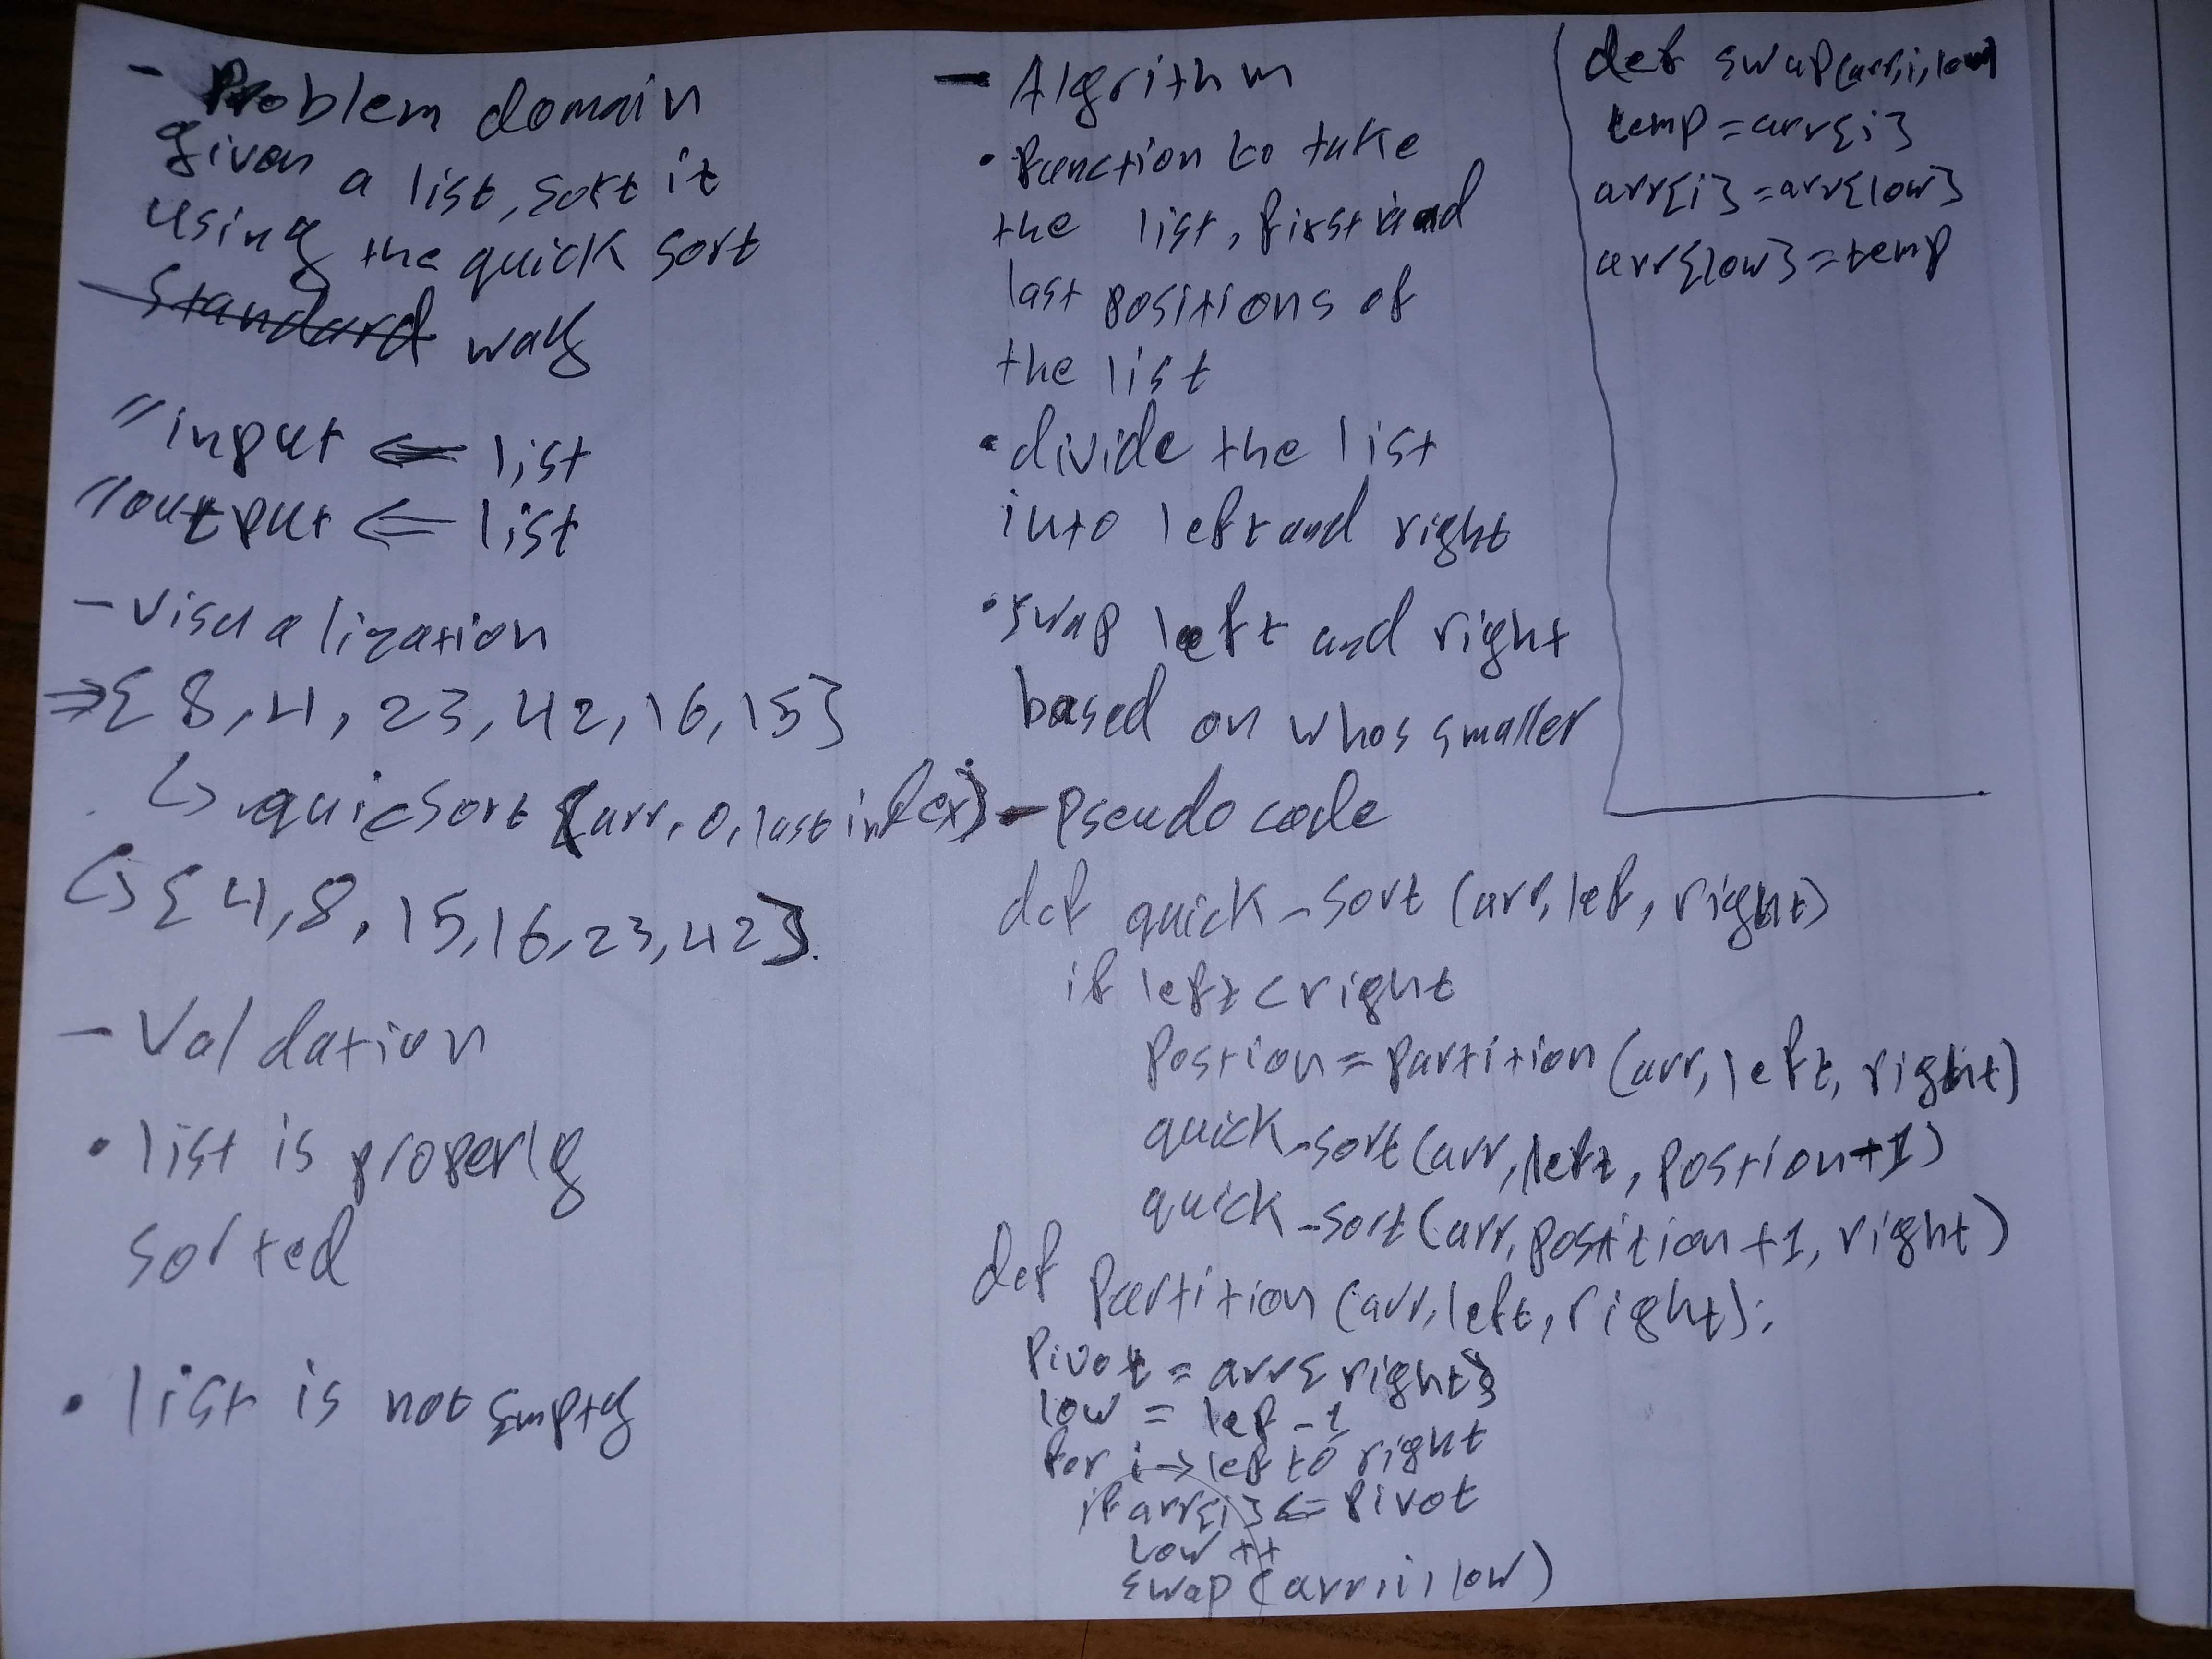 - Problem domain
given a list, sort it
using the quick sort
Standard way
"input ⇐ list
"output ⇐ list
- Visualization
⇒{ 8, 4, 23, 42, 16, 15}
↳ quicsort (arr, 0, last index)
↳{ 4, 8, 15, 16, 23, 42}.
- Validation
• list is properly
sorted
• list is not Empty
- Algrithm
• function to take
the list, first and
last positions of
the list
• divide the list
into left and right
• swap left and right
based on whos smaller
- Pseudo code
def quick_sort (arr, lef, right)
if left < right
Postion = Partition (arr, left, right)
quick_sort(arr, left, Postion+1)
quick_sort(arr, position+1, right)
def Partition (arr, left, right):
Pivot = arr{right}
low = lef -1
for i → lef to right
if arr{i} <= Pivot
low ++
swap (arr, i, low)
def swap(arr, i, low)
temp = arr{i}
arr{i} = arr{low}
arr{low} = temp